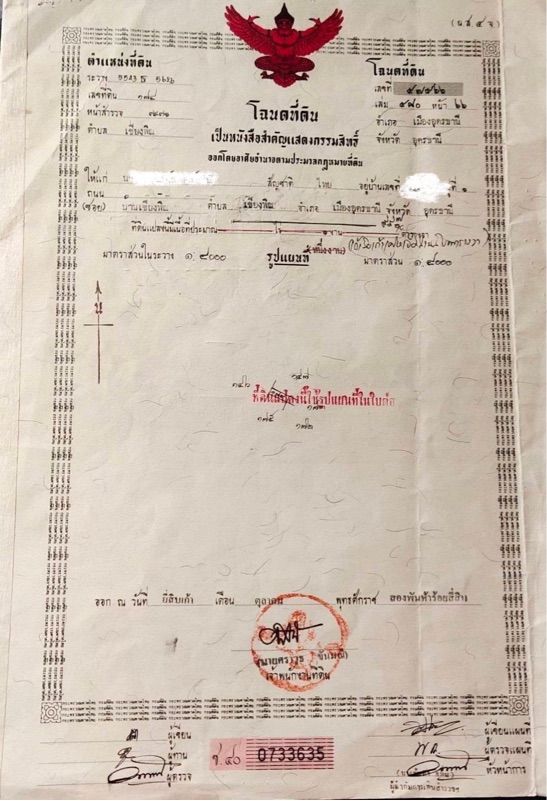 (น.ส. ๔ จ)
ตำแหน่งที่ดิน
ระวาง
เลขที่ดิน ๑๗๔
หน้าสำรวจ
ตำบล เชียงพิณ
โฉนดที่ดิน
เลขที่
เล่ม ๕๘๐ หน้า ๖๖
อำเภอ เมืองอุดรธานี
จังหวัด อุดรธานี
โฉนดที่ดิน
เป็นหนังสือสำคัญแสดงกรรมสิทธิ์
ออกโดยอาศัยอำนาจตามประมวลกฎหมายที่ดิน
ให้แก่ สัญชาติ ไทย อยู่บ้านเลขที่
ถนน
(ซอย) บ้านเชียงพิณ ตำบล เชียงพิณ อำเภอ เมืองอุดรธานี จังหวัด อุดรธานี
ที่ดินแปลงนี้มีเนื้อที่ประมาณ ไร่ ๑ งาน ตารางวา
(หนึ่งงาน)
มาตราส่วนในระวาง ๑:๔๐๐๐ รูปแผนที่ มาตราส่วน ๑:๔๐๐๐
น
๑๔๗
๑๔๖
ที่ดินแปลงนี้ใช้รูปแผนที่ในใบต่อ
๑๗๓
๑๗๕
๑๗๒
ออก ณ วันที่ ยี่สิบเก้า เดือน ตุลาคม พุทธศักราช สองพันห้าร้อยสี่สิบ
เจ้าพนักงานที่ดิน
ผู้เขียน
ผู้ทาน
ผู้ตรวจ
ช.๔๐ 0733635
ผู้เขียนแผนที่
ผู้ตรวจแผนที่
หัวหน้าการ